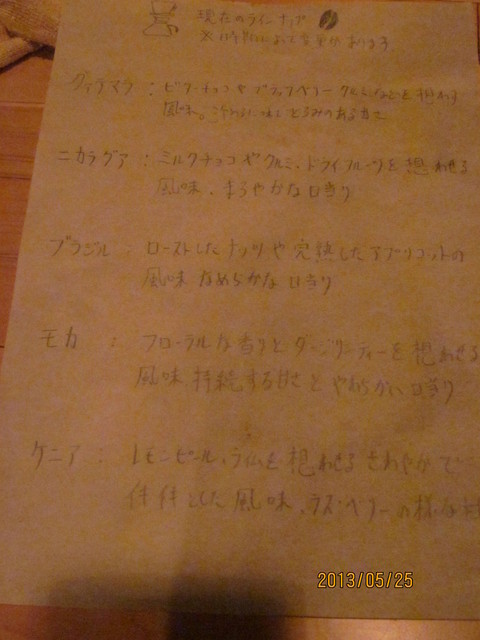 現在のラインナップ
※時期によって変更があります
グァテマラ : ビターチョコやブラックベリー クルミなどを想わす
風味。 とろみのある甘さ
ニカラグア : ミルクチョコやクルミ、ドライフルーツを想わせる
風味、まろやかな口当り
ブラジル : ローストしたナッツや完熟したアプリコットの
風味 なめらかな口当り
モカ : フローラルな香りとダージリンティーを想わせる
風味 持続する甘さとやわらかい口当り
ケニア : レモンピール、ライムを想わせるさわやかで
風味、ラズベリーの様な
2013/05/25